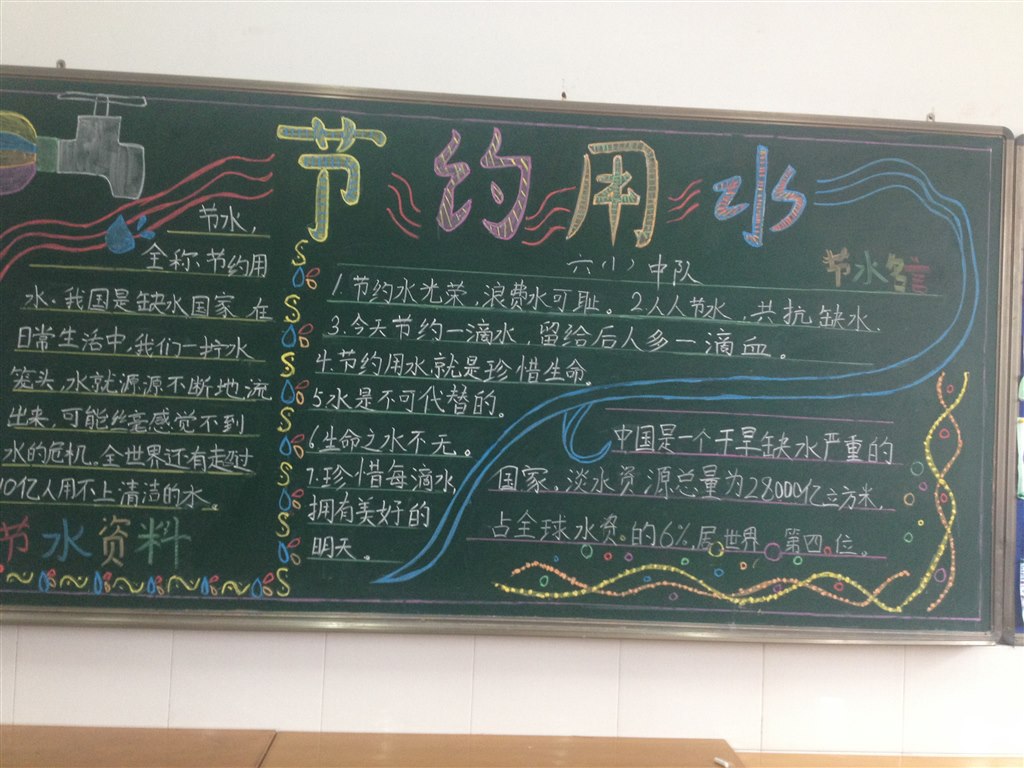 节约用水
六(1)中队
节水,
全称节约用
水.我国是缺水国家,在
日常生活中,我们一拧水
笼头,水就源源不断地流
出来,可能丝毫感觉不到
水的危机。全世界还有走过
10亿人用不上清洁的水。
节水资料
节水名言
1.节约水光荣,浪费水可耻。2.人人节水,共抗缺水.
3.今天节约一滴水,留给后人多一滴血。
4.节约用水就是珍惜生命。
5水是不可代替的。
6生命之水不无。
7.珍惜每滴水,
拥有美好的
明天。
中国是一个干旱缺水严重的
国家。淡水资源总量为28000亿立方米,
占全球水资.的6%,居世界第四位。